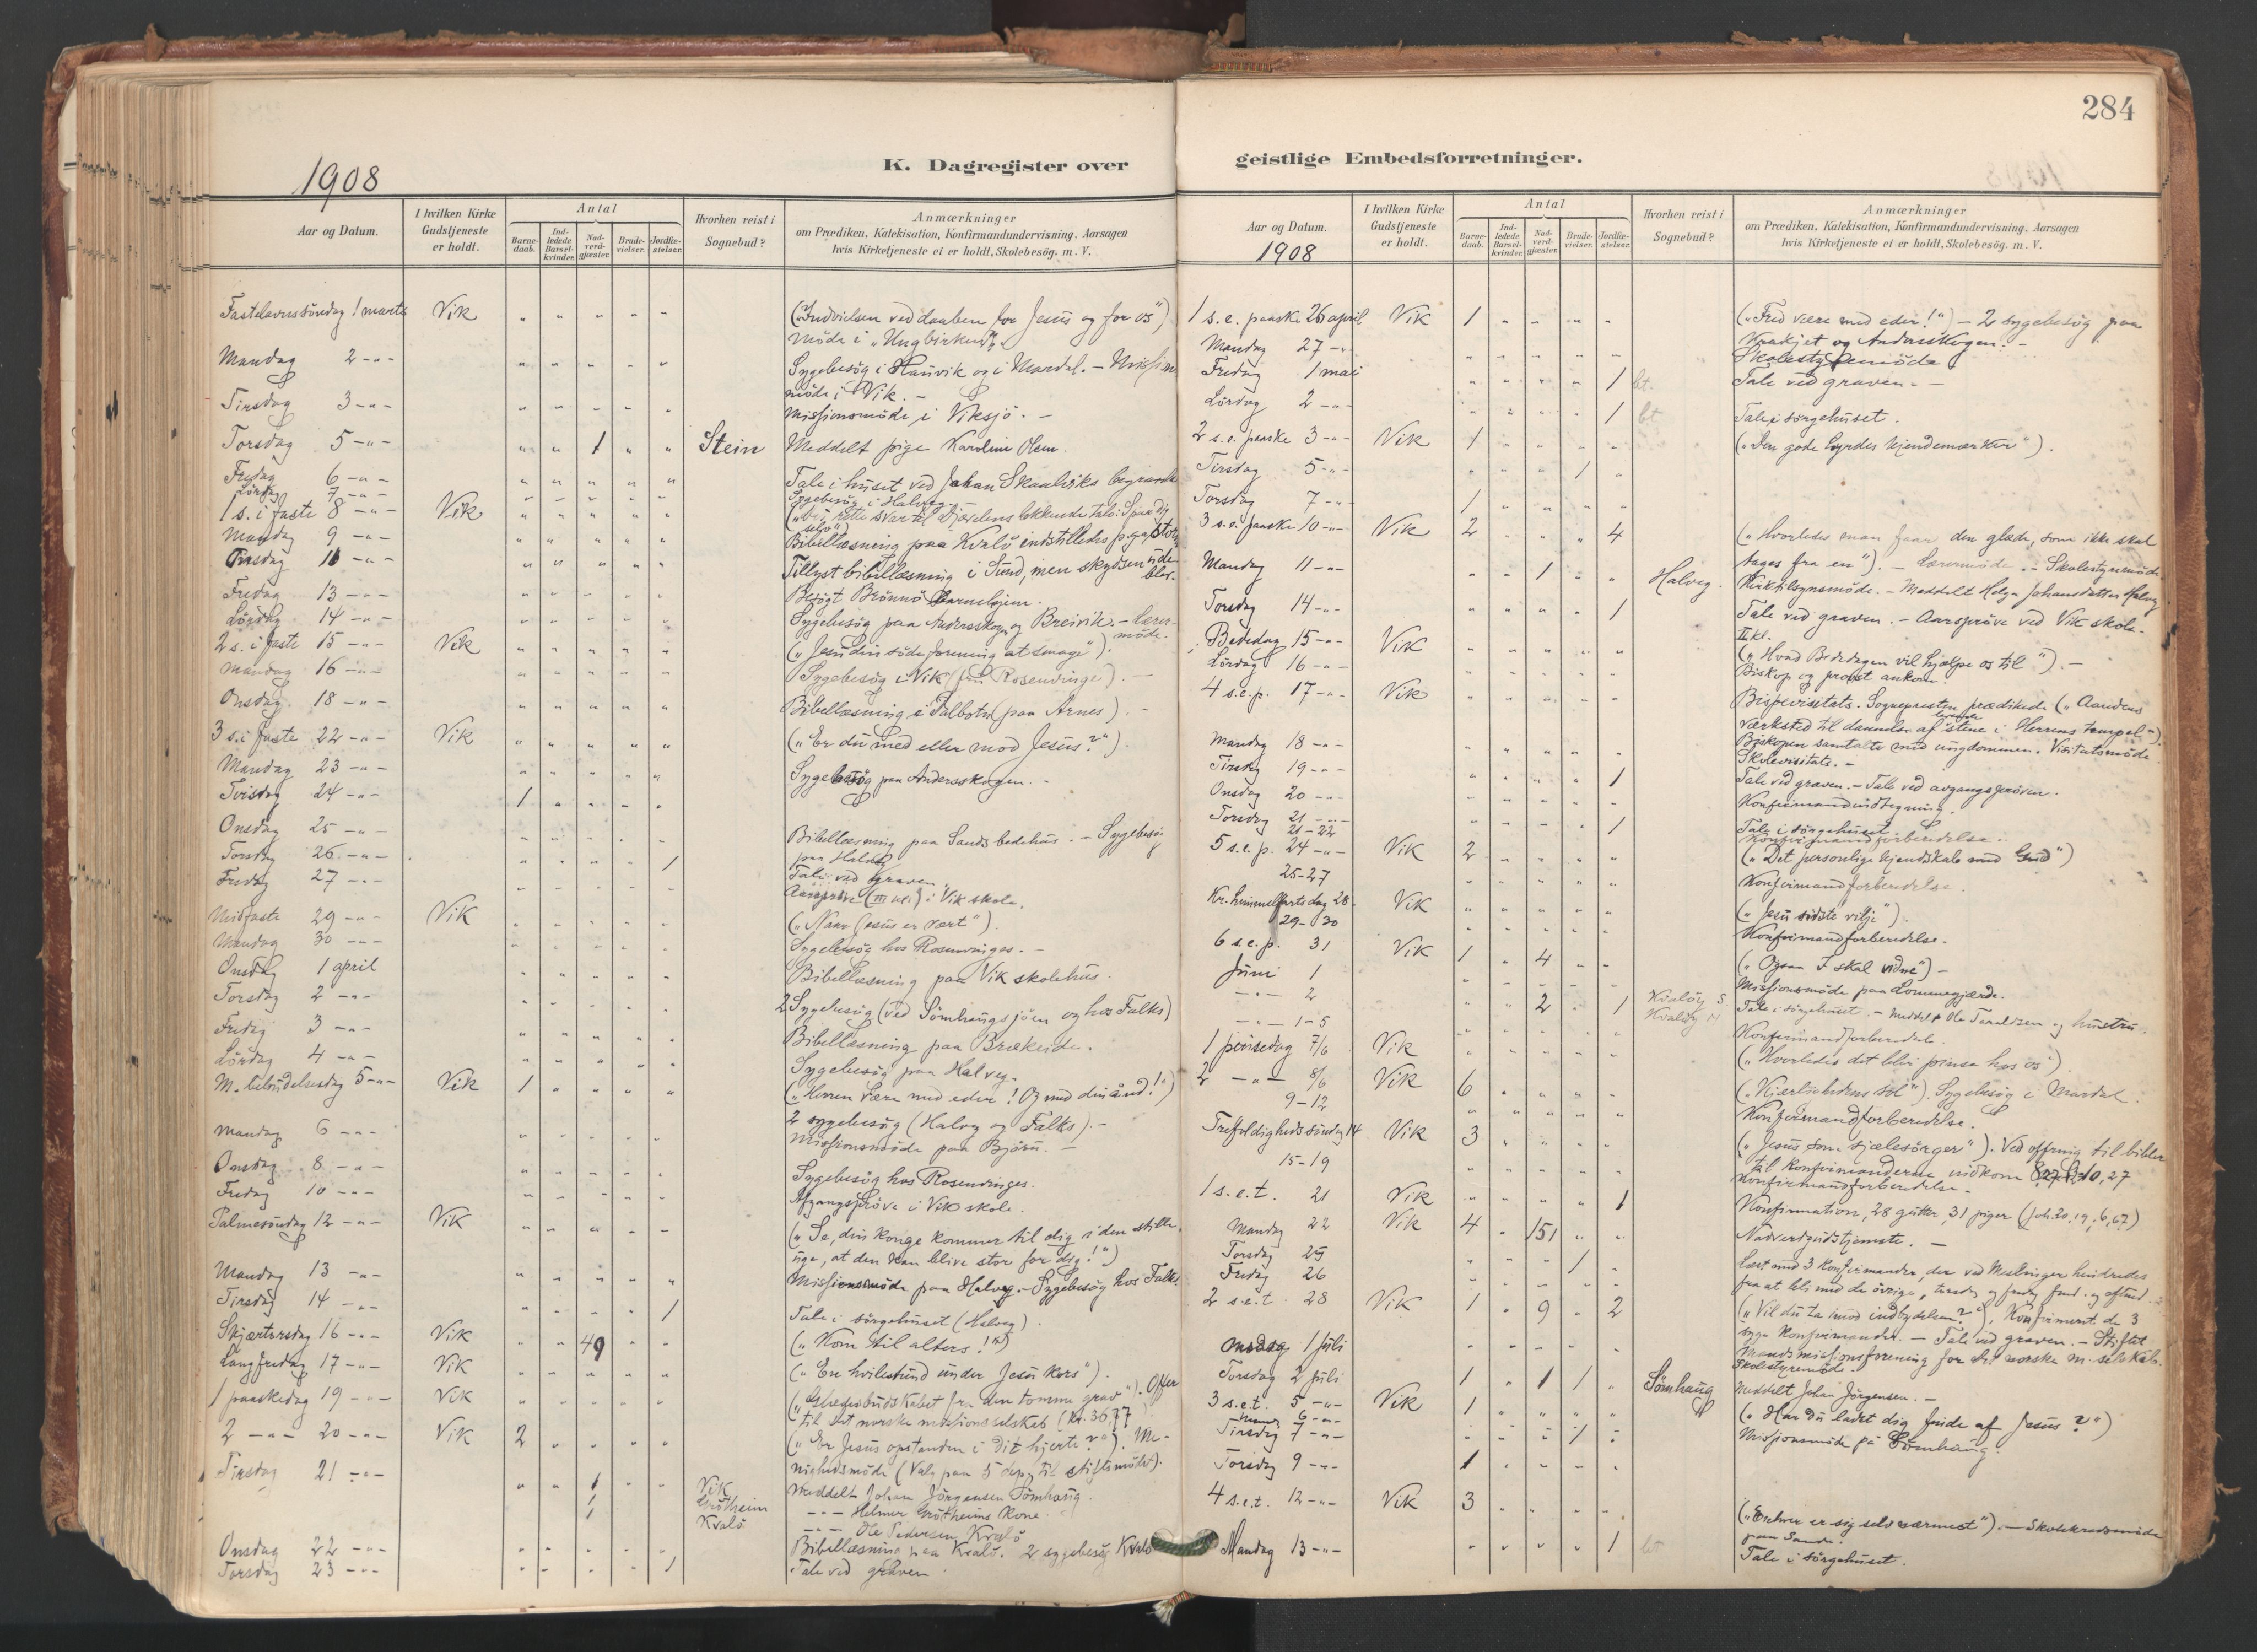 284
K. Dagregister over
geistlige Embedsforretninger.
1908
Aar og Datum.
I hvilken Kirke Gudstjeneste er holdt.
Antal
Barnedaab.
Indledede Barselkvinder.
Nadverdgjæster.
Brudevielser.
Jordfæstelser.
Hvorhen reist i Sognebud?
Anmærkninger
om Prædiken, Katekisation, Konfirmandundervisning, Aarsagen
hvis Kirketjeneste ei er holdt, Skolebesög. m. V.
Fastelavnssöndag 1 marts Vik " " " " " (Indvielsen ved daaben for Jesus og for os")
Möde i "Ungbirken".
Mandag 2 -"- " " " " Sygebesög i Hauvik og i Mardal. - Missions
möde i Vik. -
Tirsdag 3 -"- " " " " " Missionsmöde i Viksjö. -
Torsdag 5 -"- " " 1 " " Stein Meddelt pige Karoline Olsen.
Fredag 6 -"- " " " " " Tale i huset ved Johan Skaalviks begravelse
Lördag 7 -"- " " " " " Sygebesög i Halveg. -
1 s. i faste 8 -"- Vik " " " " " ("Det rette svar til fjældens lokkende tale: Spar dig
selv")
Mandag 9 -"- " " " " " Bibellæsning paa Kvalö indstilledes p.g.a. storm
Tirsdag 10 -"- " " " " " Tillyst bibellæsning i Sund, men skydsen ude-
blev.
Fredag 13 -"- " " " " " Besögt Brönnö Barnehjem.
Lördag 14 -"- " " " " " Sygebesög paa Andersskogen og Breivik. - Lærer-
möde.
2 s. i faste 15 -"- Vik " " " " " ("Jesu din söde forening at smage").
Mandag 16 -"- " " " " " Sygebesög i Vik (fru Rosenvinge). -
Onsdag 18 -"- " " " " " Bibellæsning i Talbotn (paa Arnes). -
3 s. i faste 22 -"- Vik " " " " " ("Er du med eller mod Jesus?")
Mandag 23 -"- " " " " " Sygebesög paa Andersskogen. -
Tirsdag 24 -"- 1 " " " "
Onsdag 25 -"- " " " " " Bibellæsning paa Sands bedehus. - Sygebesög
paa Halveg
Torsdag 26 -"- " " " " 1 Tale ved graven
Fredag 27 -"- " " " " " Aarspröve (III kl.) i Vik skole.
Midfaste 29 -"- Vik " " " " " ("Naar Jesus er vært").
Mandag 30 -"- " " " " " Sygebesög hos Rosenvinges. -
Onsdag 1 april " " " " " Bibellæsning paa Vik skolehus.
Torsdag 2 -"- " " " " " 2 Sygebesög (ved Sömhaugsjöen og hos Falks)
Fredag 3 -"- " " " " " Bibellæsning paa Brækeide.
Lördag 4 -"- " " " " " Sygebesög paa Halveg.
M. bebudelsesdag 5 -"- Vik 1 " " " " ("Herren være med eder! Og med din ånd!")
Mandag 6 -"- " " " " " 2 sygebesög (Halveg og Falks). -
Missionsmöde paa Björn. -
Onsdag 8 -"- " " " " " Sygebesög hos Rosenvinges.
Fredag 10 -"- " " " " " Afgangspröve i Vik skole.
Palmesöndag 12 -"- Vik " " " " " ("Se, din konge kommer til dig i den stille
uge, at den kan blive stor for dig!")
Mandag 13 -"- " " " " " Missionsmöde paa Halveg. - Sygebesög hos Falks
Tirsdag 14 -"- " " " " 1 Tale i sörgehuset (Halveg).
Skjærtorsdag 16 -"- Vik " " 49 " " ("Kom til alters!")
Langfredag 17 -"- Vik " " " " " ("En hvilestund under Jesu kors").
1 paaskedag 19 -"- Vik " " " " " ("Glædesbudskabet fra den tomme grav"). Offer
til det norske missionsselskab (kr. 36,77)
2 -"- 20 -"- Vik 2 " " " " ("Er Jesus opstanden i dit hjerte?"). Me-
nighedsmöde (Valg paa 5 dep. til stiftsmödet).
Tirsdag 21 -"- " " 1 " " Vik Meddelt Johan Jörgensen Sömhaug.
1 Grötheim -"- Helmer Grötheims kone.
1 Kvalö -"- Ole Pedersen Kvalö
Onsdag 22 -"- " " " " " Bibellæsning paa Kvalö. 2 sygebesög Kvalö
Torsdag 23 -"- " " " " 1 Tale ved graven
Aar og Datum.
1908
I hvilken Kirke Gudstjeneste er holdt.
Antal
Barnedaab.
Indledede Barselkvinder.
Nadverdgjæster.
Brudevielser.
Jordfæstelser.
Hvorhen reist i Sognebud?
Anmærkninger
om Prædiken, Katekisation, Konfirmandundervisning, Aarsagen
hvis Kirketjeneste ei er holdt, Skolebesög. m. V.
1 s. e. paaske 26 april Vik 1 " " " " ("Fred være med eder!") - 2 sygebesög paa
og Andersskogen. -
Mandag 27 -"- " " " " " Skolestyremöde
Fredag 1 mai " " " " 1 bt. Tale ved graven. -
Lördag 2 -"- " " " " 1 bt Tale i sörgehuset.
2 s. e. paaske 3 -"- Vik 1 " " " " ("Den gode hyrdes kjendemærker").
Tirsdag 5 -"- " " " 1 "
Torsdag 7 -"- 1 " " " "
3 s. e. paaske 10 -"- Vik 2 " " " 4 ("Hvorledes man faar den glæde, som ikke skal
tages fra en"). - Lærermöde. - Skolestyremöde
Mandag 11 -"- " " 1 " " Halveg. Kirketilsynsmöde. - Meddelt Helga Johansdatter Halveg
Torsdag 14 -"- " " " " 1 Tale ved graven. - Aarspröve ved Vik skole.
II kl.
Bededag 15 -"- Vik " " " " " ("Hvad Bededagen vil hjælpe os til"). -
Lördag 16 -"- " " " " " Biskop og provst ankom.
4 s. e. p. 17 -"- Vik " " " " " Bispevisitats. Sognepresten prædikede ("Aandens
værksted til dannelse af levende stene i Herrens tempel").
Biskopen samtalte med ungdommen. Visitatsmöde.
Mandag 18 -"- " " " " " Skolevisitats. -
Tirsdag 19 -"- " " " " 1 Tale ved graven. - Tale ved avgangspröven.
Onsdag 20 -"- " " " " " Konfirmandindtegning.
Torsdag 21 -"- " " " " 1 Tale i sörgehuset
21-22 Konfirmandforberedelse.
5 s. e. p. 24 -"- Vik 2 " " " " ("Det personlige kjendskab med Gud")
25-27 " " " " " Konfirmandforberedelse.
Kr. himmelfartsdag 28 Vik " " " " " ("Jesu sidste vilje").
29-30 " " " " " Konfirmandforberedelse.
6 s. e. p. 31 Vik 1 " 4 " " ("Ogsaa I skal vidne") -
Juni 1 " " " " " Missionsmöde paa Lommegjærde.
-"- 2 " " 2 " 1 Kvalöy S. Kvalöy N Tale i sörgehuset. - Meddelt Ole Taraldsen og hustru.
-"- 1-5 " " " " " Konfirmandforberedelse.
1 pinsedag 7/6 Vik " " " " " ("Hvorledes det blir pinse hos os").
2 -"- 8/6 Vik 6 " " " " ("Kjærlighedens sol"). Sygebesög i Mardal.
9-12 " " " " " Konfirmandforberedelse.
Trefoldighedssöndag 14 Vik 3 " " " " ("Jesus som sjælesörger"). Ved offring til bibler
til konfirmanderne indkom 10,27
15-19 " " " " " Konfirmandforberedelse.
1 s. e. t. 21 Vik " " " " 1 Konfirmation, 28 gutter, 31 piger (Joh. 20,19; 6,67)
Mandag 22 Vik 4 " 151 " " Nadverdgudstjeneste. -
Torsdag 25 " " " 1 " Læst med 3 konfirmander, der ved Meslinger hindredes
Fredag 26 fra at bli med de övrige, torsdag og fredag form. og efterm.
2 s. e. t. 28 Vik 1 " 9 " 2 ("Vil du ta mod indbydelsen?"). Konfirmert de 3
syge konfirmander. - Tale ved graven. - Stiftet
Mandsmissionsforening for det norske m. selskab.
Onsdag 1 Juli " " " " " Skolestyremöde.
Torsdag 2 Juli 1 " 1 1 " Sömhaug Meddelt Johan Jörgensen. -
3 s. e. t. 5 -"- Vik 1 " " " " ("Har du ladet dig finde af Jesus?")
Mand. 6 -"- Missionsmöde på Sömhaug.
Tirsdag 7 -"- " " " 1 "
Torsdag 9 -"- 1 " " " "
4 s. e. t. 12 -"- Vik 3 " " " " ("Enhver er sig selv nærmest"). - Skolekredsmöde
paa Sande.
Mandag 13 -"- " " " " 1 bt Tale i sörgehuset.